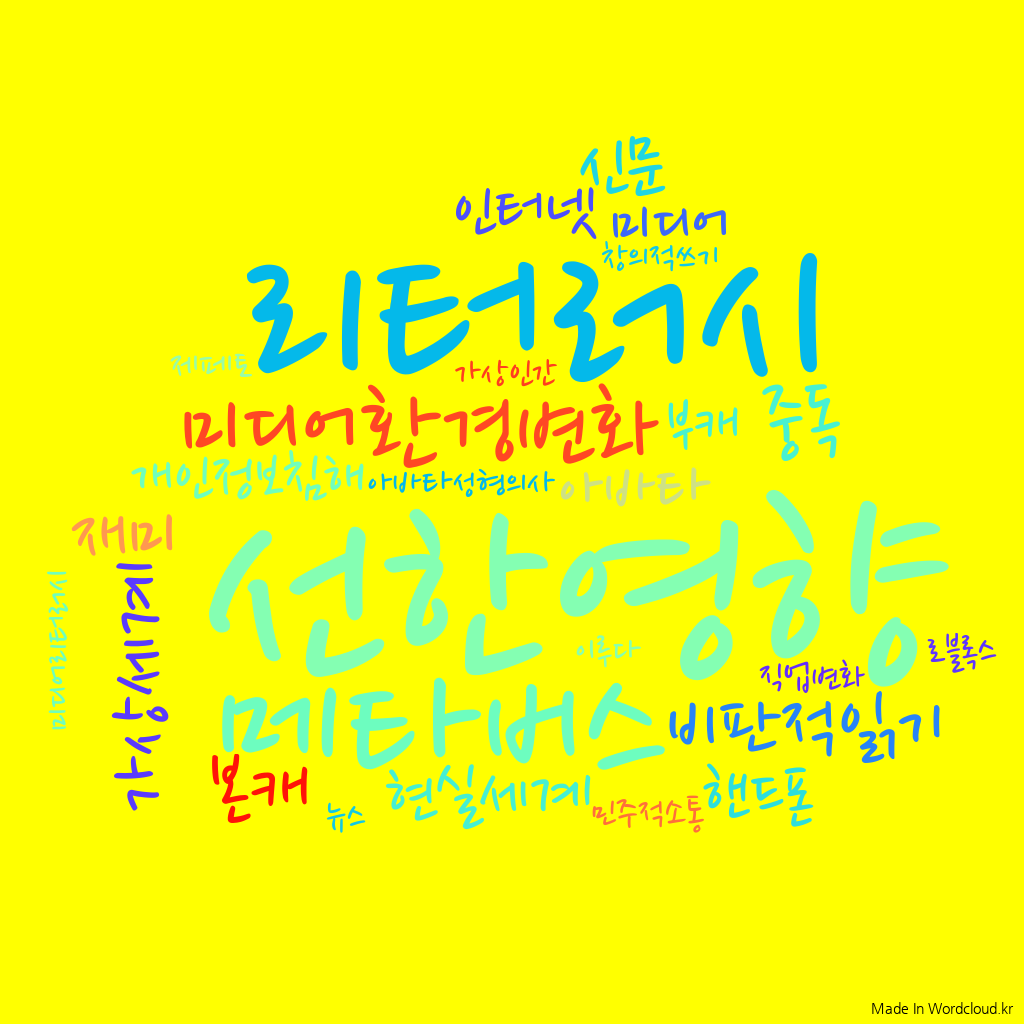 신문
인터넷
미디어
창의적쓰기
리터러시
제페토
가상인간
미디어환경변화
부캐
중독
개인정보침해
아바타성형의사
아바타
재미
선한영향
가상세계
미디어리터러시
이루다
로블록스
직업변화
메타버스
비판적읽기
본캐
현실세계
핸드폰
뉴스
민주적소통
Made In Wordcloud.kr